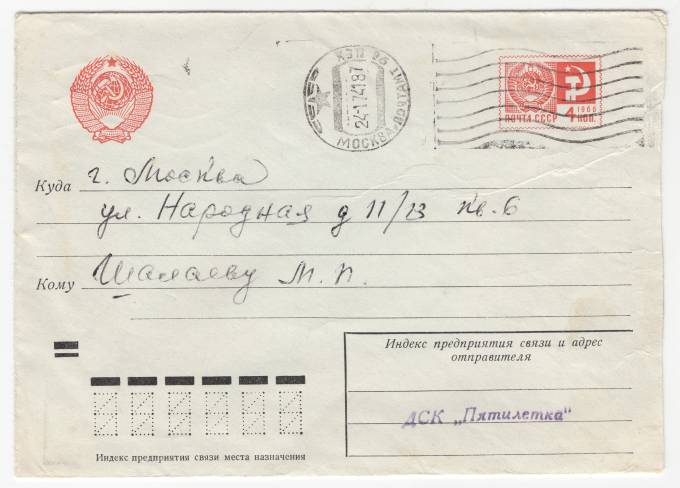 МОСКВА ПОЧТАМТ 98 ЦЕХ
24 1 74 1 87
1966
4
ПОЧТА СССР КОП.
Куда г. Москва
ул. Народная д 11/13 кв. 6
Кому Шалаеву М. П.
Индекс предприятия связи и адрес
отправителя
ДСК „Пятилетка“
Индекс предприятия связи места назначения